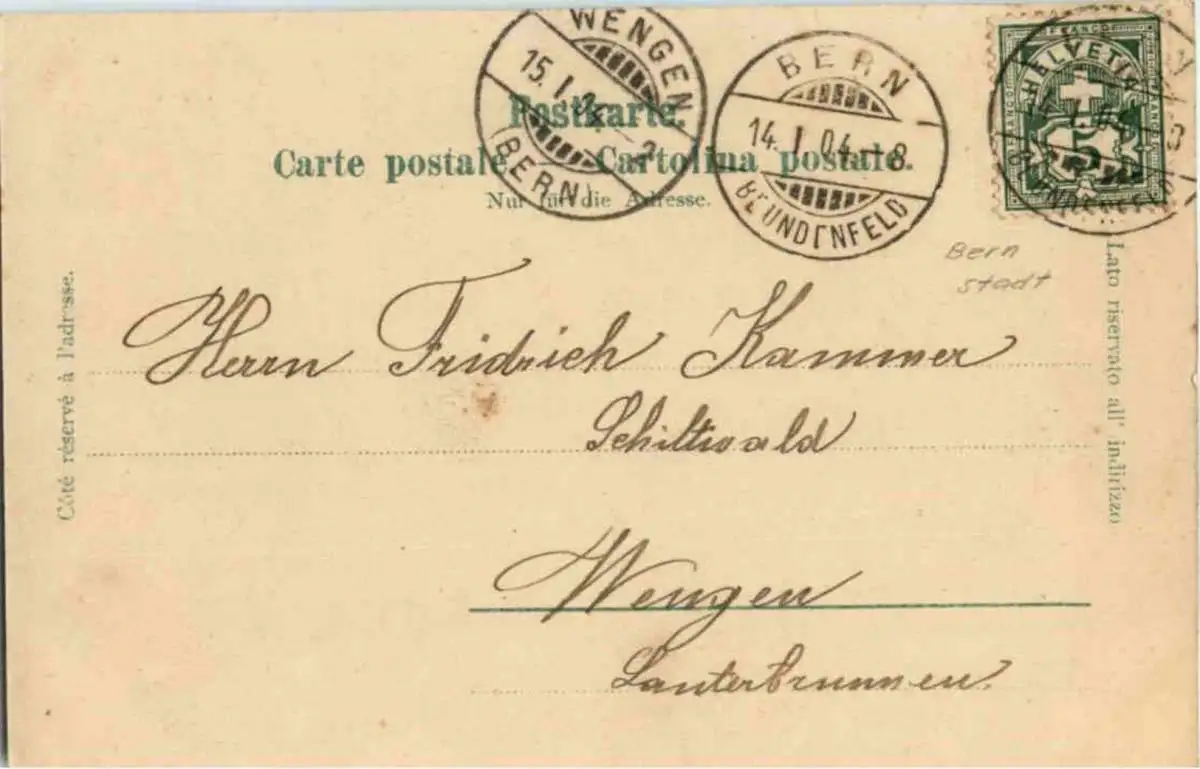 WENGEN
15. I. 04.
(BERN)
BERN
14. I. 04.–8
BLUNDENFELD
FRANCO
HELVETIA
5
Postkarte.
Carte postale. Cartolina postale.
Nur für die Adresse.
Bern
stadt
Côté réservé à l'adresse.
Lato riservato all' indirizzo
Herrn Fridrich Kammer
Schiltwald
Wengen
Lauterbrunnen.